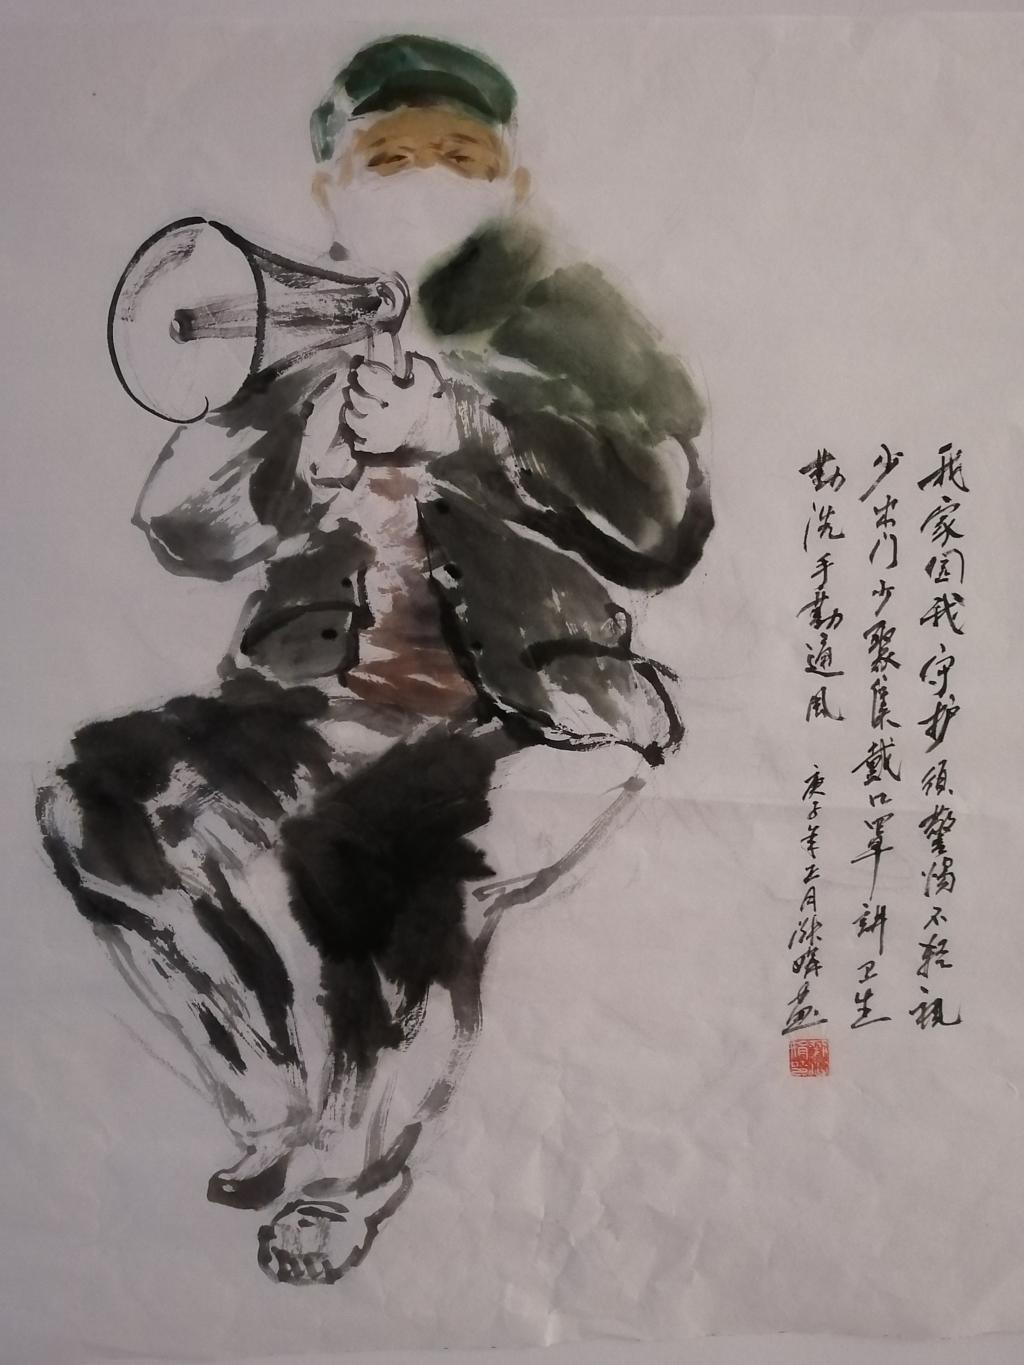 我家园我守护须警惕不轻视
少出门少聚集戴口罩讲卫生
勤洗手勤通风
庚子年正月 画